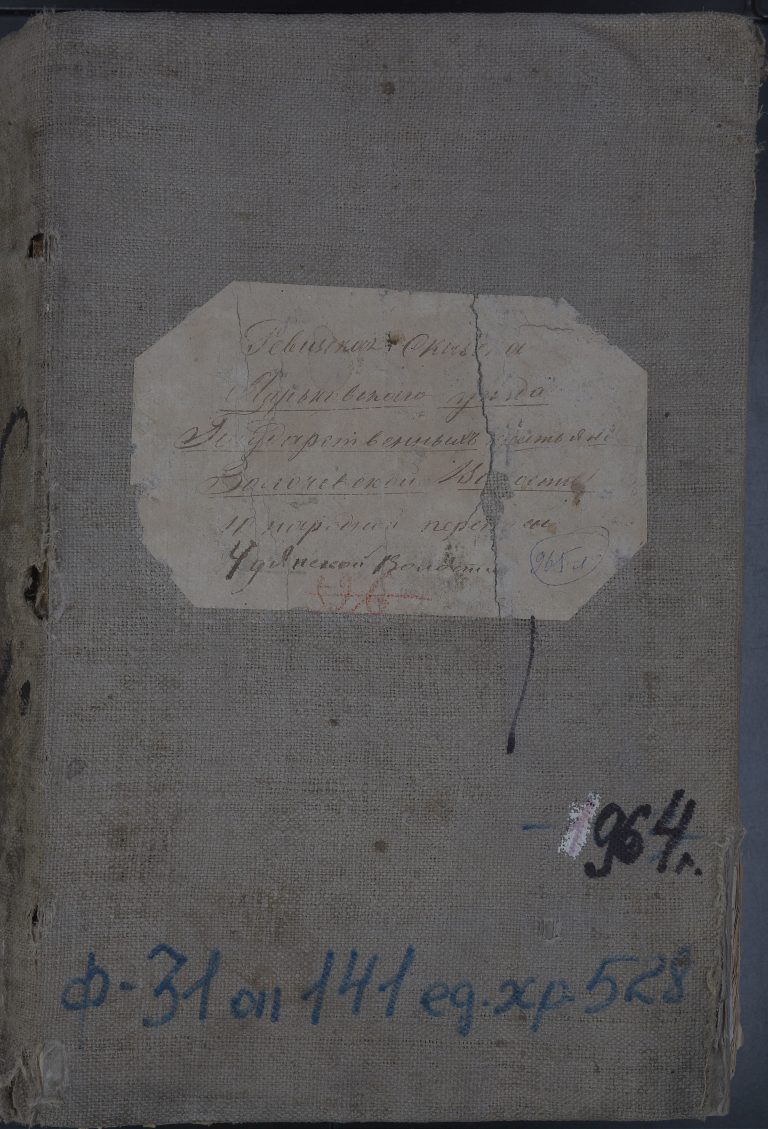 Ревизская Сказка
Харьковского уезда
Государственныхъ крестьянъ
Золочевской Волости
II народной переписи
Удянской Волости
965 л
526
1964 г.
ф-31 оп 141 ед.хр 528